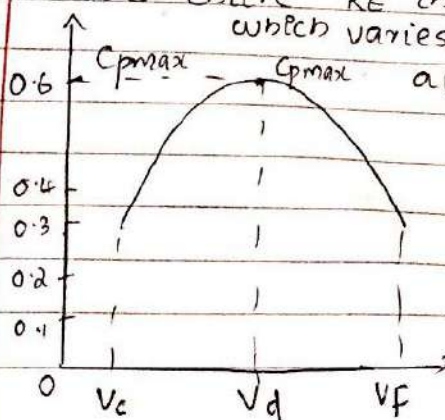 KE
which varies
Cpmax
Cpmax a
0.6
0.4
0.3
0.2
0.1
0 Vc Vd VF